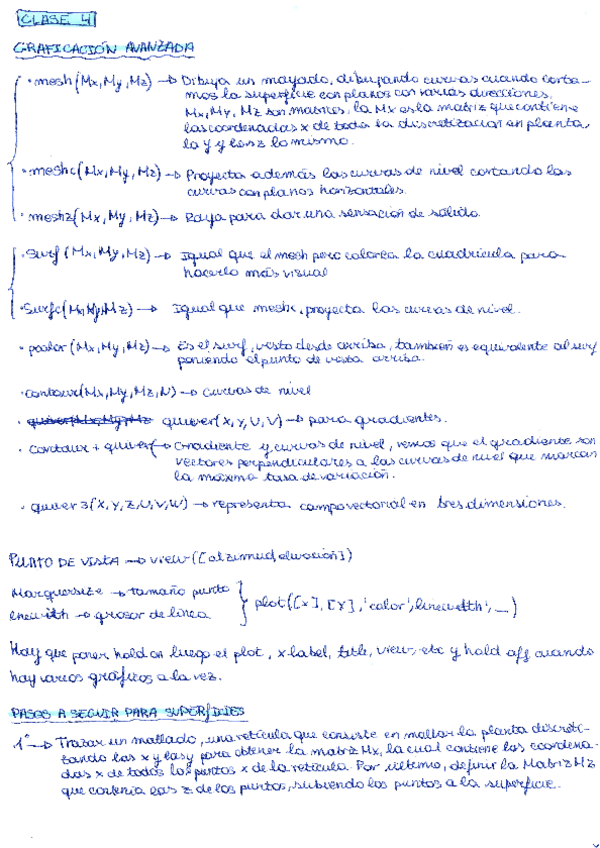 CLASE 4
GRAFICACIÓN AVANZADA
· mesh(Mx,My,Mz) → Dibuja un mayado, dibujando curvas cuando corta-
mos la superficie con planos con varias direcciones.
Mx, My, Mz son matrices, la Mx es la matriz que contiene
las coordenadas x de toda la discretización en planta,
la y y las z lo mismo.
· meshc(Mx,My,Mz) → Proyecta además las curvas de nivel cortando las
curvas con planos horizontales.
· meshz(Mx,My,Mz) → Raya para dar una sensación de sólido.
· Surf(Mx,My,Mz) → Igual que el mesh pero colorea la cuadrícula para
hacerlo más visual
· Surfc(Mx,My,Mz) → Igual que meshc, proyecta las curvas de nivel.
· pcolor(Mx,My,Mz) → Es el surf, visto desde arriba, también es equivalente al surf
poniendo el punto de vista arriba.
· contour(Mx,My,Mz,N) → curvas de nivel
· quiver(Mx,My,Mz quiver(X,Y,U,V) → para gradientes.
· Contour + quiver → Gradiente y curvas de nivel, vemos que el gradiente son
vectores perpendiculares a las curvas de nivel que marcan
la máxima tasa de variación.
· quiver3(X,Y,Z,U,V,W) → representa campo vectorial en tres dimensiones.
PUNTO DE VISTA → view([alzimud, elevación])
Marquersize → tamaño punto
linewith → grosor de linea
plot([X], [Y], 'color', linewidth', _)
Hay que poner hold on luego el plot, xlabel, title, view, etc y hold off cuando
hay varios gráficos a la vez.
PASOS A SEGUIR PARA SUPERFICIES
1º → Trazar un mallado, una retícula que consiste en mallar la planta discreti-
zando las x y las y para obtener la matriz Mx, la cual contiene las coordena-
das x de todos los puntos x de la retícula. Por último, definir la Matriz Mz
que contenía las z de los puntos, subiendo los puntos a la superficie.